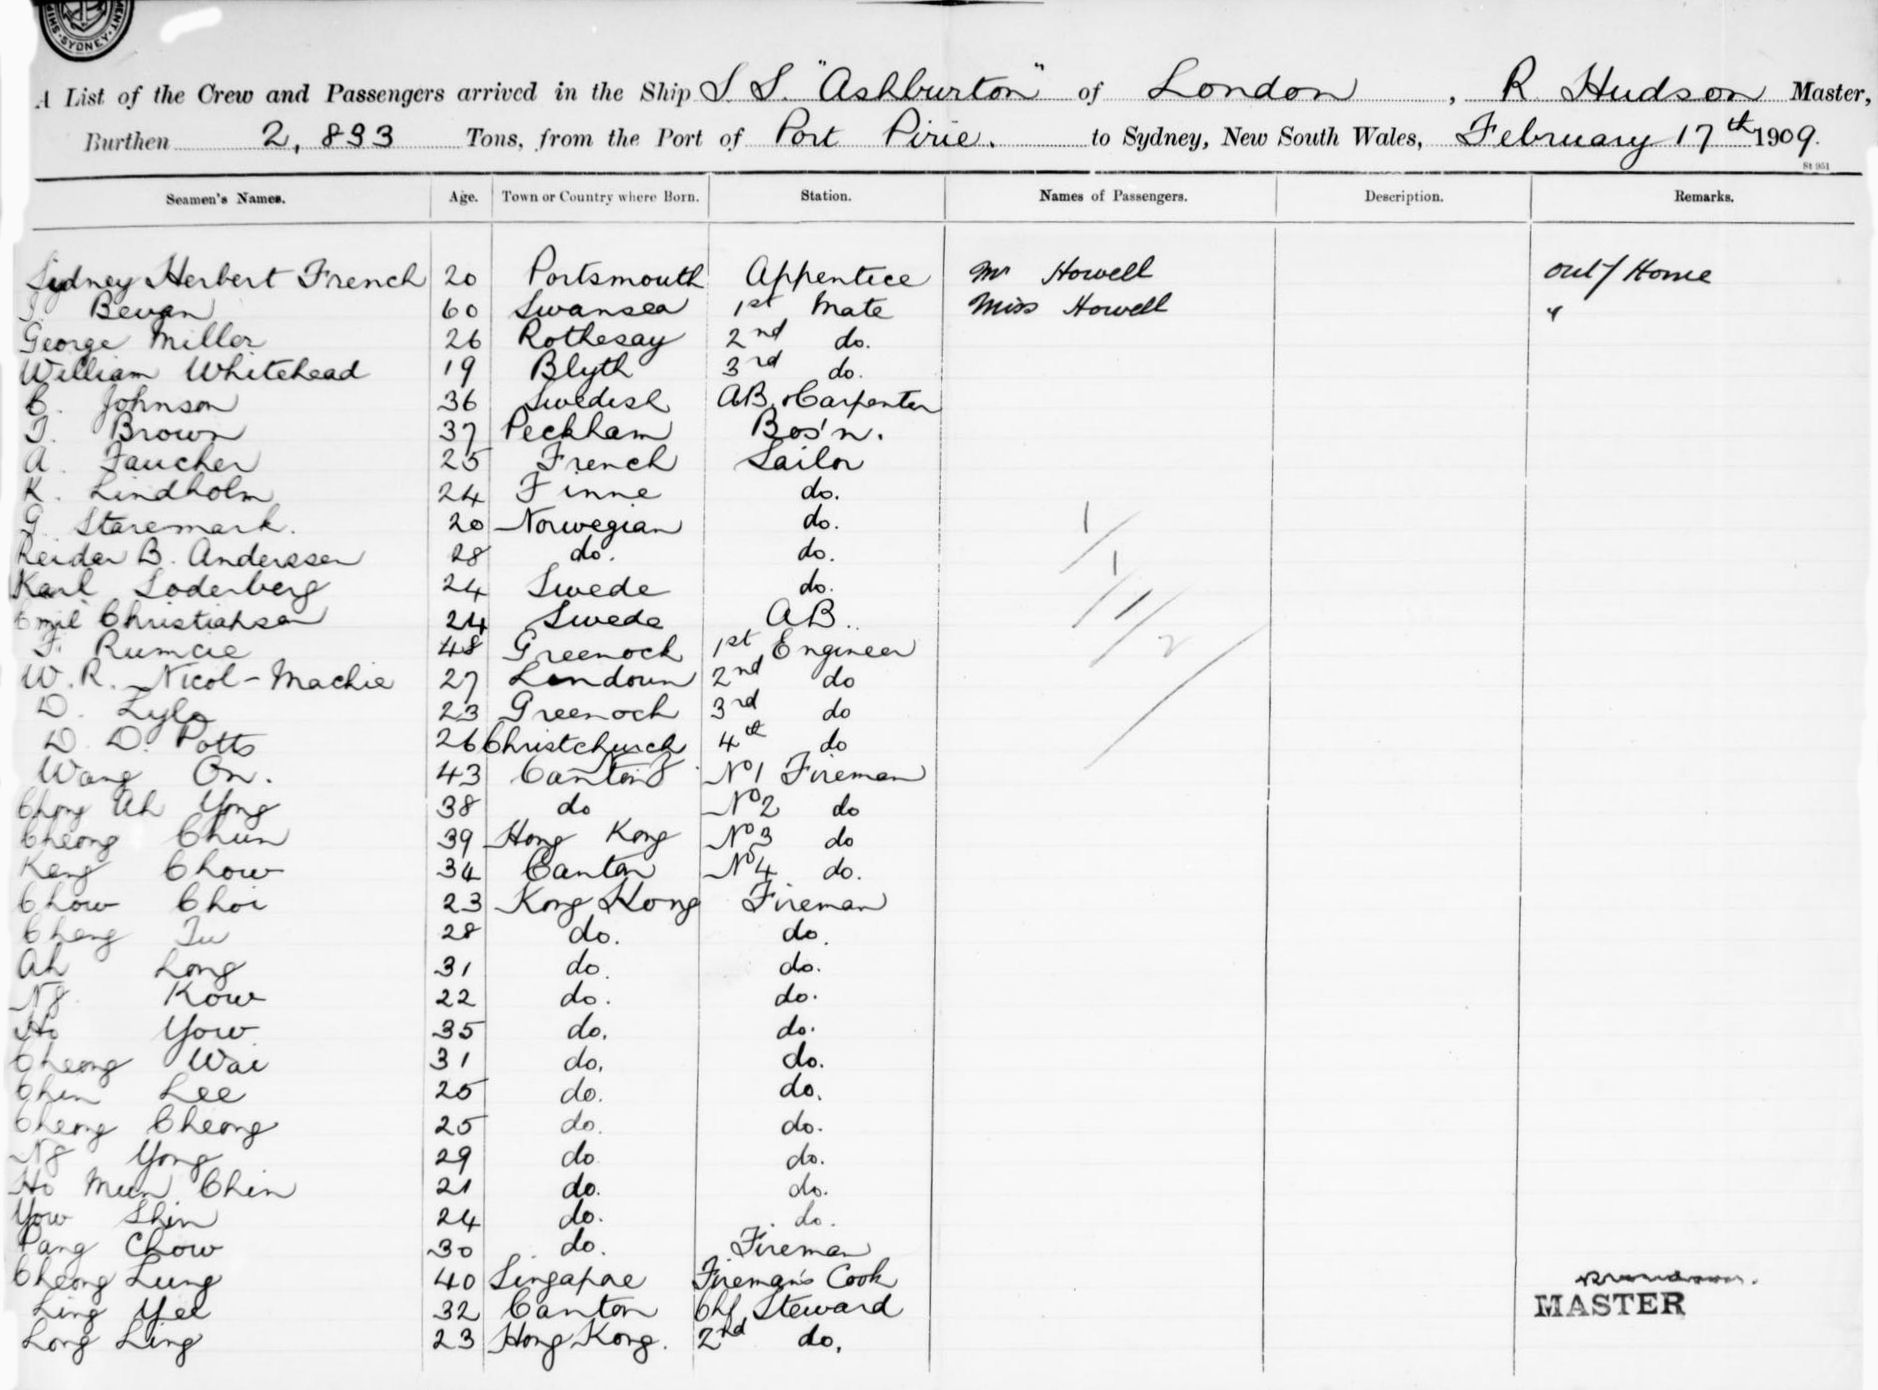 SYDNEY
A List of the Crew and Passengers arrived in the Ship S.S. "Ashburton" of London, R Hudson Master,
Burthen 2,893 Tons, from the Port of Port Pirie. to Sydney, New South Wales, February 17th 1909.
St 951
Seamen's Names. Age. Town or Country where Born. Station. Names of Passengers. Description. Remarks.
Sydney Herbert French 20 Portsmouth Appentice Mr Howell out/Home
Bevan 60 Swansea 1st Mate Miss Howell "
George Miller 26 Rothesay 2nd do.
William Whitehead 19 Blyth 3rd do.
C. Johnson 36 Swedish AB. & Carpenter
T. Brown 37 Peckham Bos'n.
A. Faucher 25 French Sailor
K. Lindholm 24 Finne do.
G. Staremark. 20 Norwegian do.
Reidar B. Anderssen 28 do. do.
Karl Soderberg 24 Swede do.
Emil Christiansen 24 Swede AB..
F. Rumcie 48 Greenock 1st Engineer
W. R. Nicol-Mackie 27 London 2nd do
D. Lyle 23 Greenock 3rd do
D. D. Potts 26 Christchurch 4th do
N.Z.
Wang On. 43 Canton No 1 Fireman
Chong Ah Yong 38 do No 2 do
Cheong Chun 39 Hong Kong No 3 do
Keng Chow 34 Canton No 4 do.
Chow Choi 23 Kong Hong Fireman
Cheng Tu 28 do. do.
Ah Long 31 do. do.
Ng Kow 22 do. do.
Ho Yow 35 do. do.
Cheong Wai 31 do. do.
Chin Lee 25 do. do.
Cheong Cheong 25 do. do.
Ng Yong 29 do do.
Ho Mun Chin 21 do. do.
Yow Shin 24 do. do.
Pang Chow 30 do. Fireman
Cheong Lung 40 Singapae Fireman's Cook
Ling Yee 32 Canton Chf Steward
MASTER
Long Ling 23 Hong Kong. 2nd do.